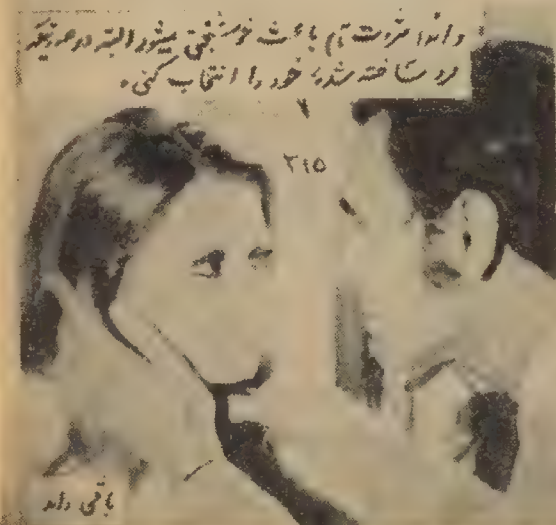 واندا، ثروت هم باعث خوشبختی میشود البته در صورتیکه
مرد ساخته شده خود را انتخاب کنی.
۳۱۵
باقی دارد